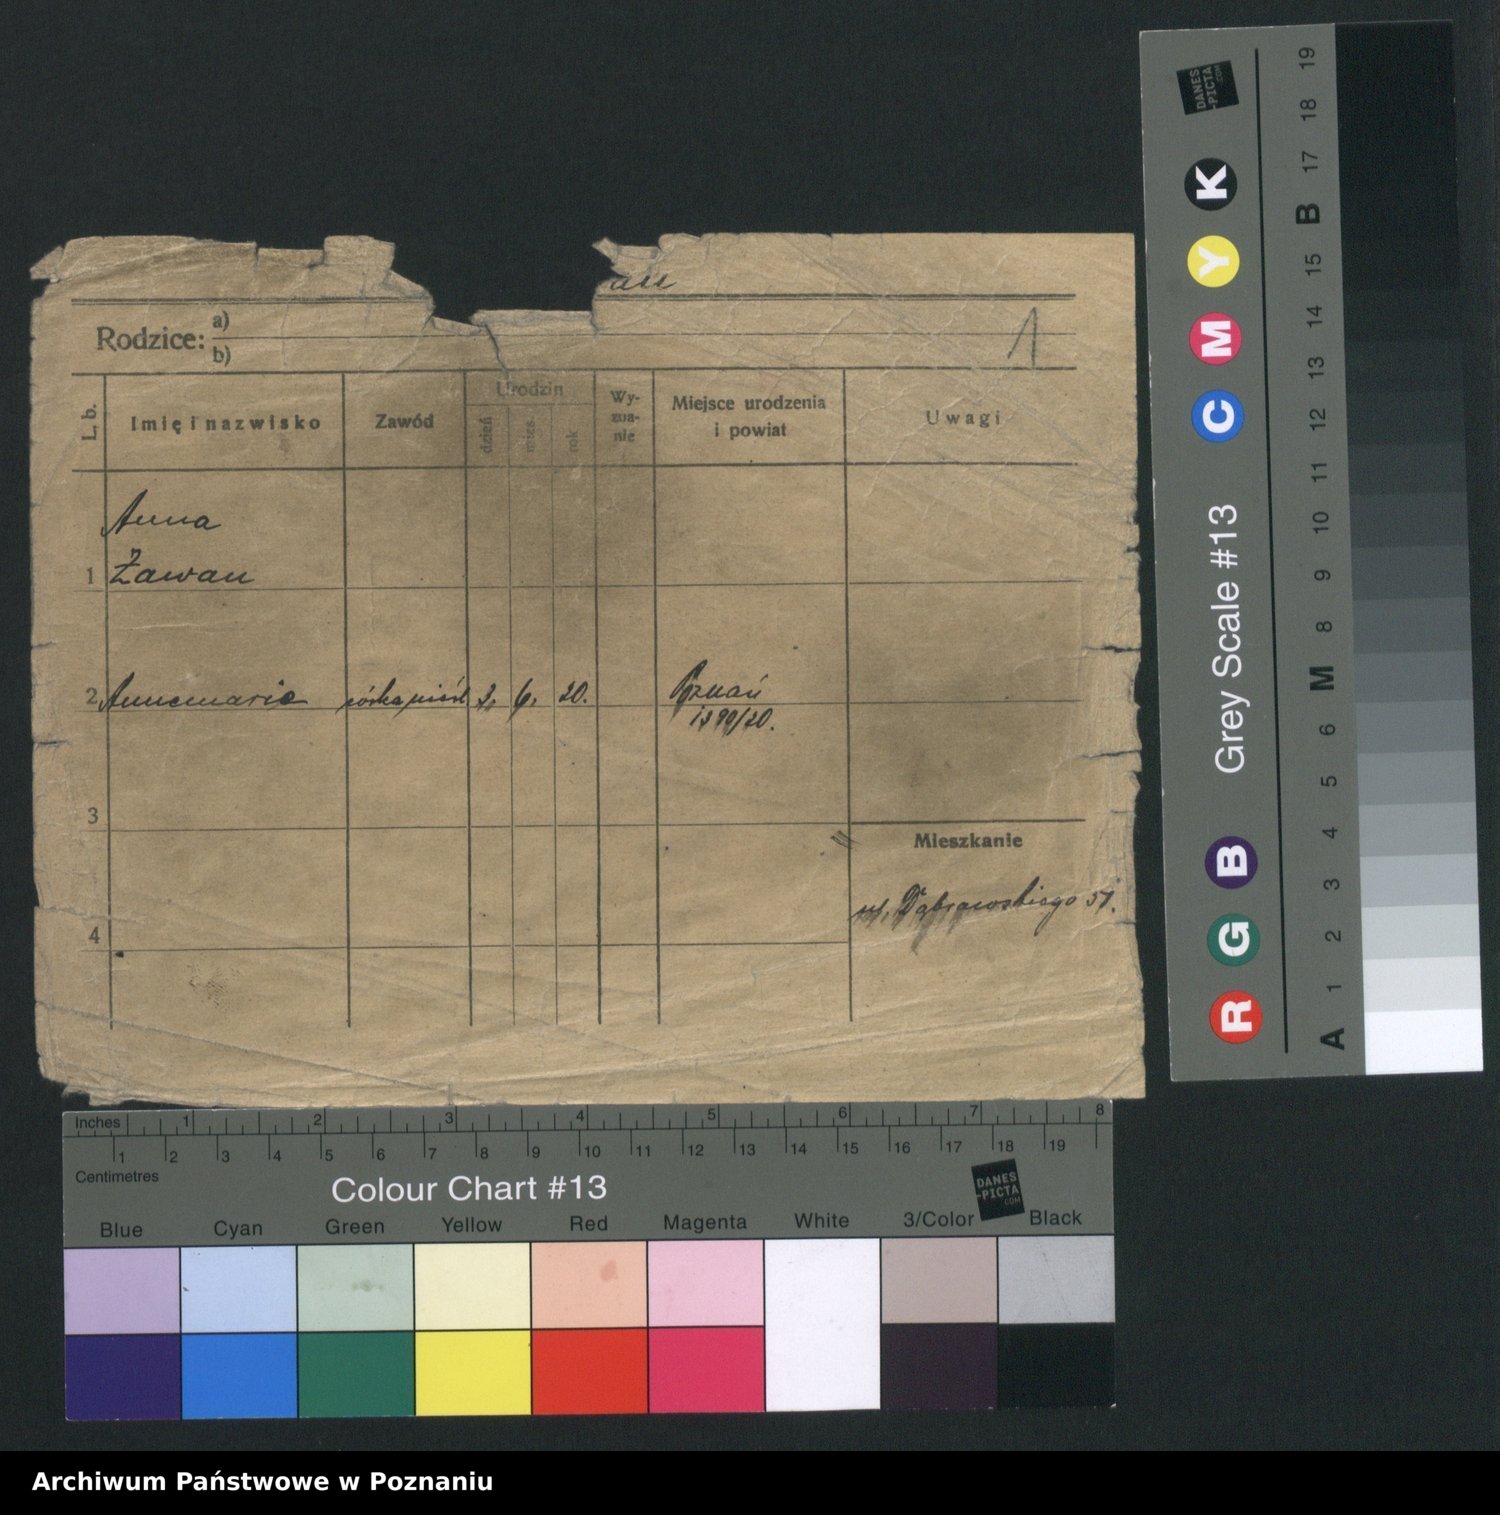 au
Rodzice: a)
b)
1
L. b.
Imię i nazwisko
Zawód
Urodzin
dzień
mies.
rok
Wy-
zna-
nie
Miejsce urodzenia
i powiat
Uwagi
Anna
1 Zawau
2 Annemarie córka nieśl. 2. 6. 20. Poznań
1390/20.
3
Mieszkanie
ul. Dąbrowskiego 51.
4
Inches 1 2 3 4 5 6 7 8
1 2 3 4 5 6 7 8 9 10 11 12 13 14 15 16 17 18 19
Centimetres
Colour Chart #13
DANES
-PICTA
.COM
Blue Cyan Green Yellow Red Magenta White 3/Color Black
R G B Grey Scale #13 C M Y K
DANES
-PICTA
.COM
A 1 2 3 4 5 6 M 8 9 10 11 12 13 14 15 B 17 18 19
Archiwum Państwowe w Poznaniu